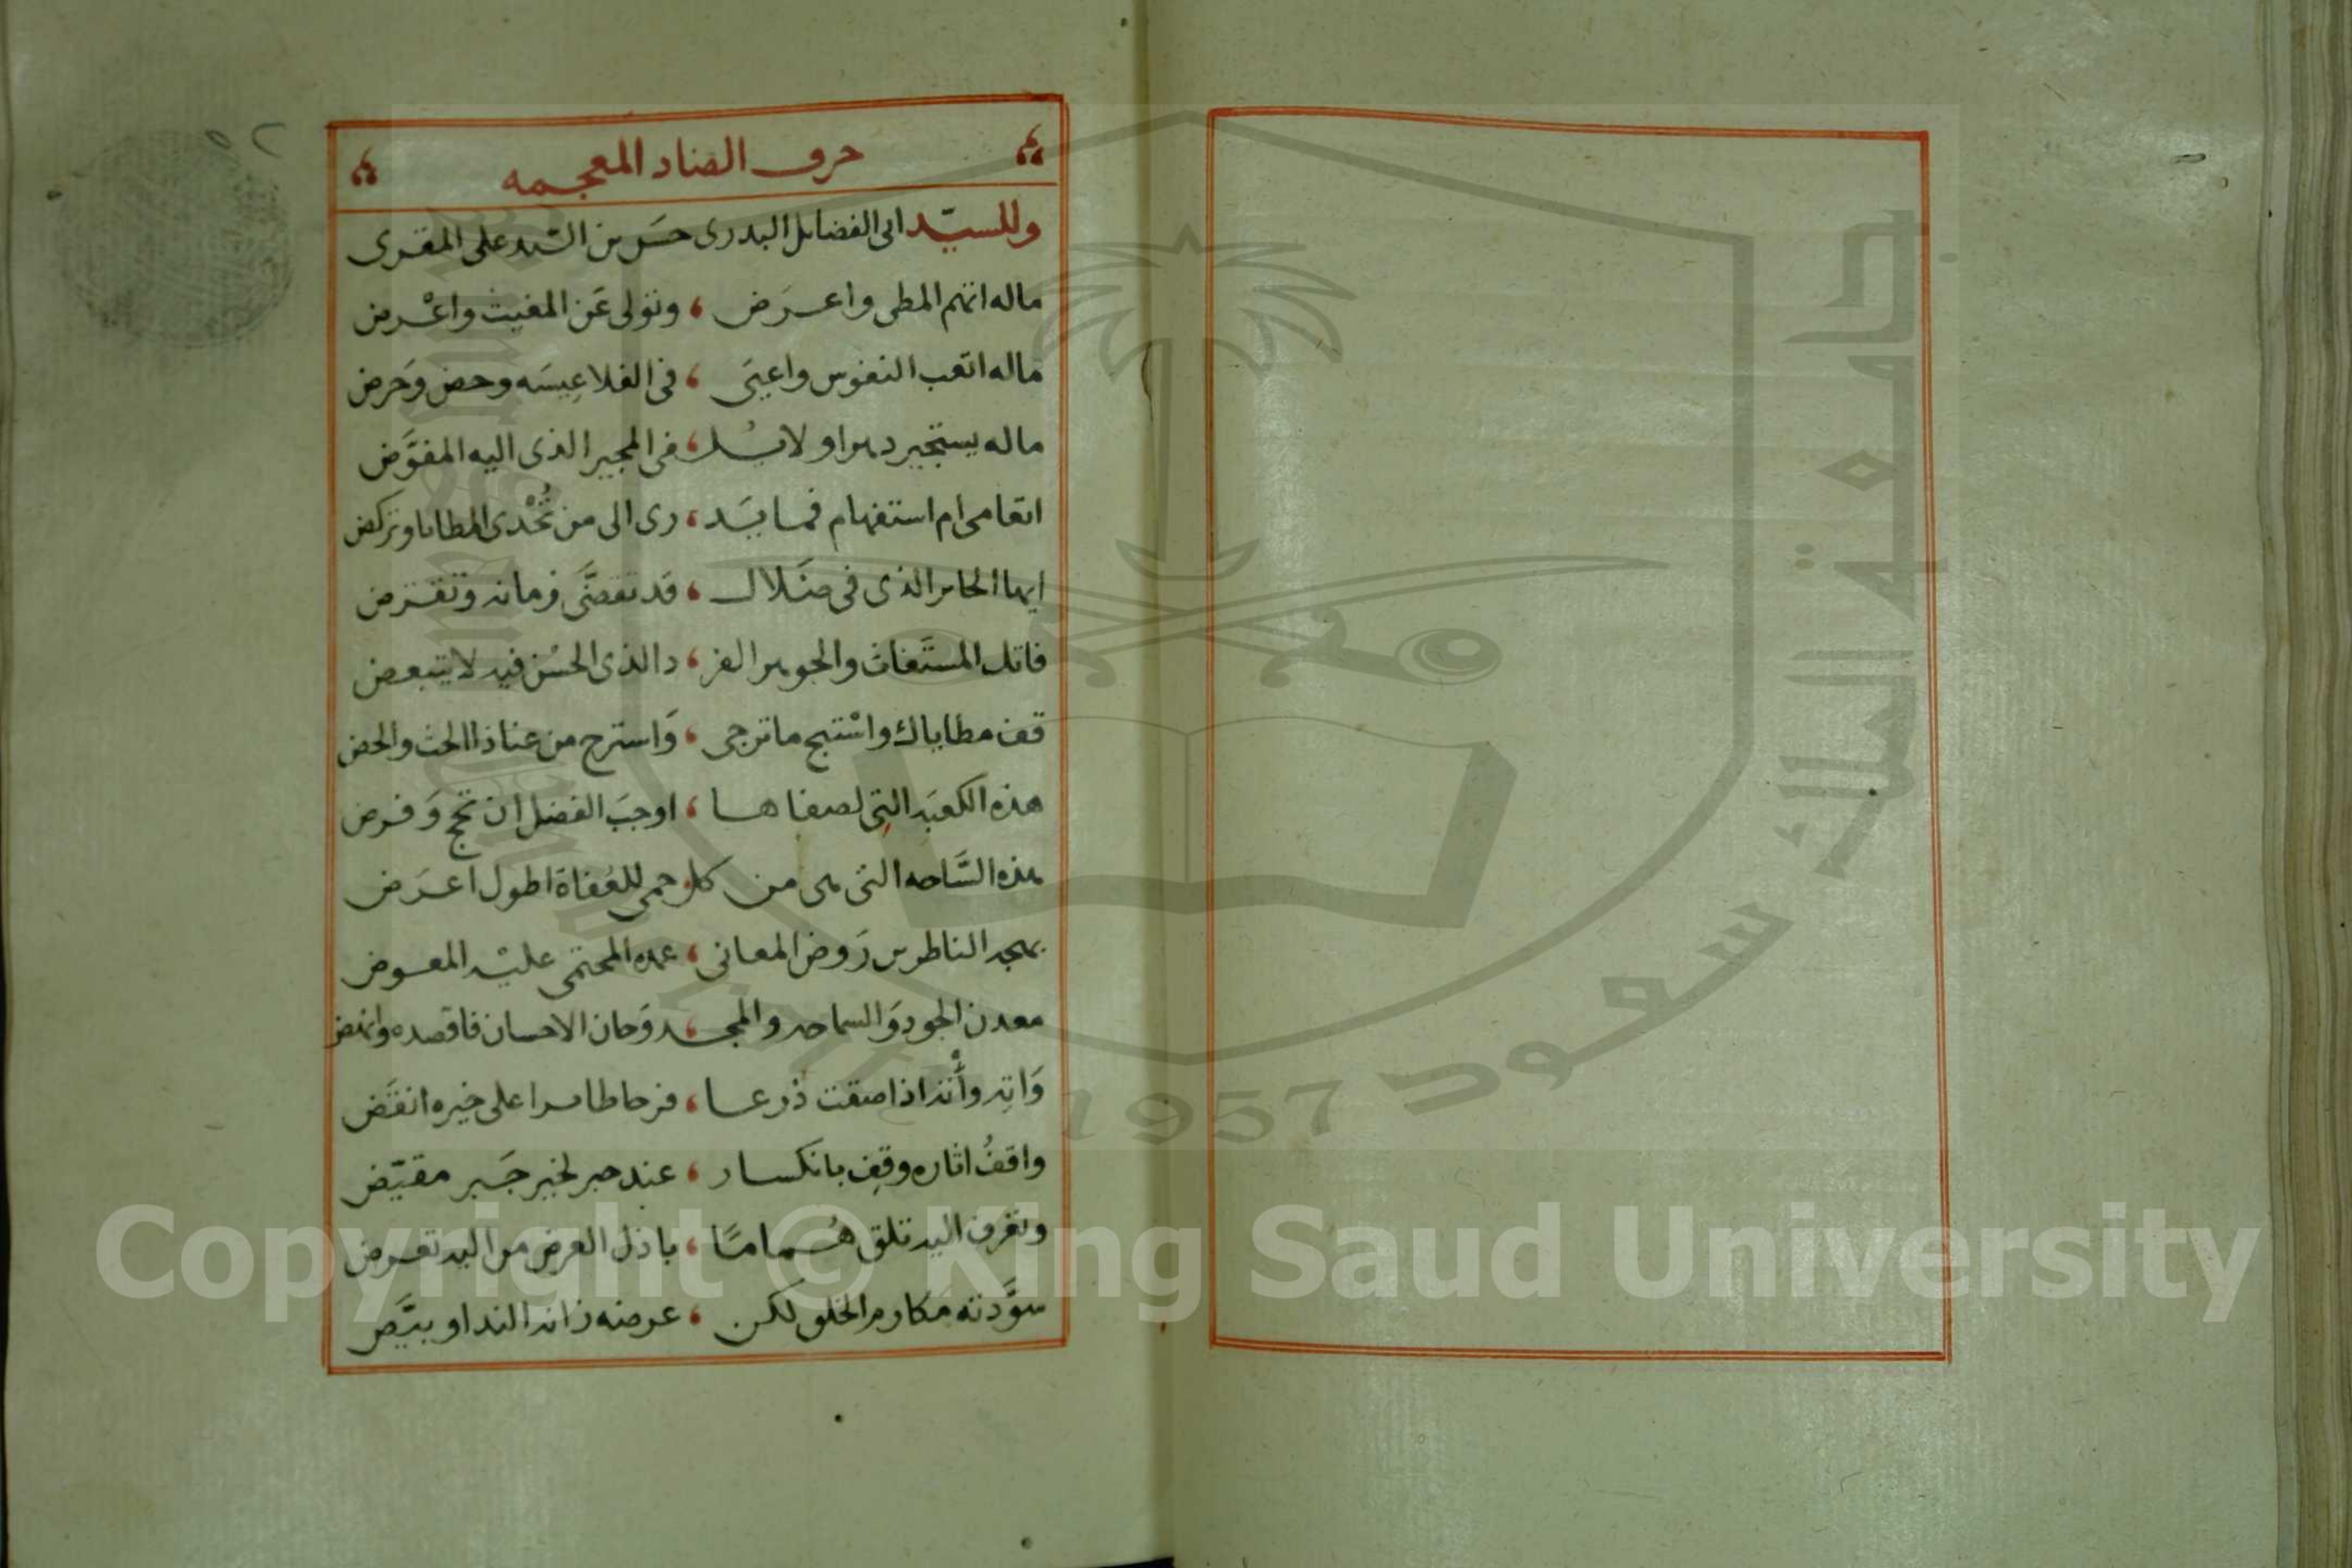 ٥٢
حرف الضاد المعجمه
وللسيّد ابى الفضايل البدرى حسن بن السّيد على المقرى
ماله اتهم المطى واعرَض ، وتولى عَن المغيث واعْرض
ماله اتعب النفوس واعيَى ، فى الفلا عِيسَه وحض وَحرض
ماله يستجير دهرا ولا يسْل ، فى المجير الذى اليه المفوَّض
اتعامى ام استفهام فما يسَد ، رى الى من تُحْدى المطايا وتركض
ايها الحاير الذى فى ضَلال ، قد تقضَّى زمانه وتقرض
فاتك المستَغاث والجوهر الفر ، د الذى الحسْن فيه لا يتبعض
قف مطاياك واسْتبح ما ترجى ، وَاسترح من عنا ذا الحث والحض
هذه الكعبَه التِى لصفاها ، اوجبَ الفضل ان تحج وَفرض
هذه السَّاحه التى هى من كل حمى للعُفاة اطول اعرَض
بهجه الناظرين رَوض المعانى ، عمده المحتمى عليْه المعوض
معدن الجود وَالسماحه والمجد ، وَحان الاحسان فاقصده وانهض
وَاتِه وأْته اذا ضقت ذرعا ، فرحا طامرا على خيره انقَض
واقفُ اثاره وقِف بانكسار ، عند حبر لخير جَبر مقيّض
وتعرف اليه تلق هُمامًا ، باذل العرض من اليه تعرض
سوَّدته مكارم الخلق لكن ، عرضه زانه الندا وبيَّض
جامعة الملك سعود
1957
King Saud University
Copyright © King Saud University